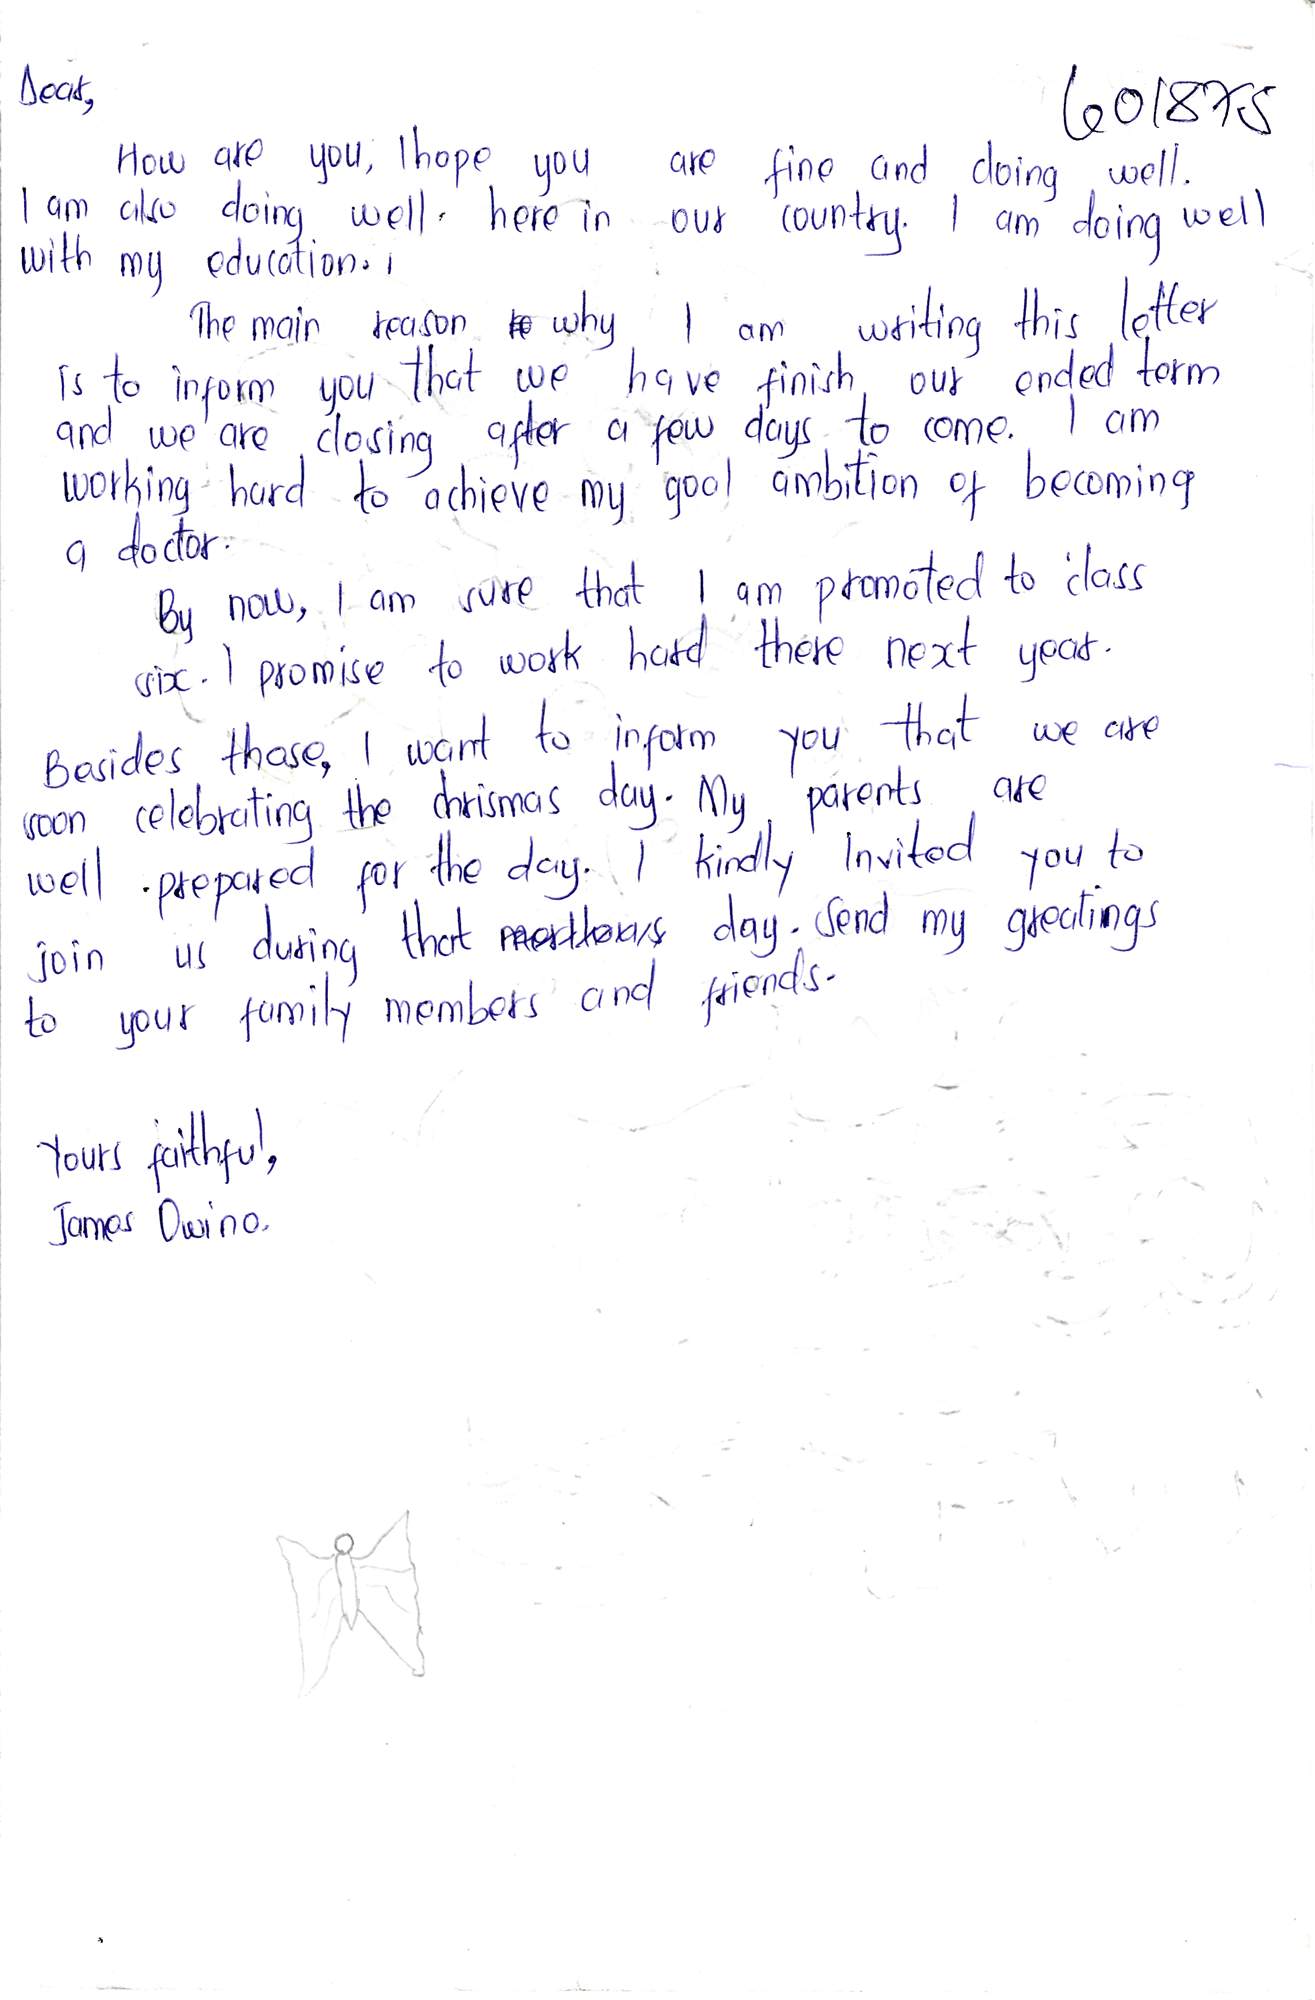 Dear,
601875
How are you, I hope you are fine and doing well.
I am also doing well. here in our country. I am doing well
with my education.
The main reason why I am writing this letter
is to inform you that we have finish our ended term
and we are closing after a few days to come. I am
working hard to achieve my gool ambition of becoming
a doctor.
By now, I am sure that I am promoted to class
six. I promise to work hard there next year.
Besides those, I want to inform you that we are
soon celebrating the chrismas day. My parents are
well prepared for the day. I kindly Invited you to
join us during that day. Send my greatings
to your family members and friends.
Yours faithful,
James Owino.